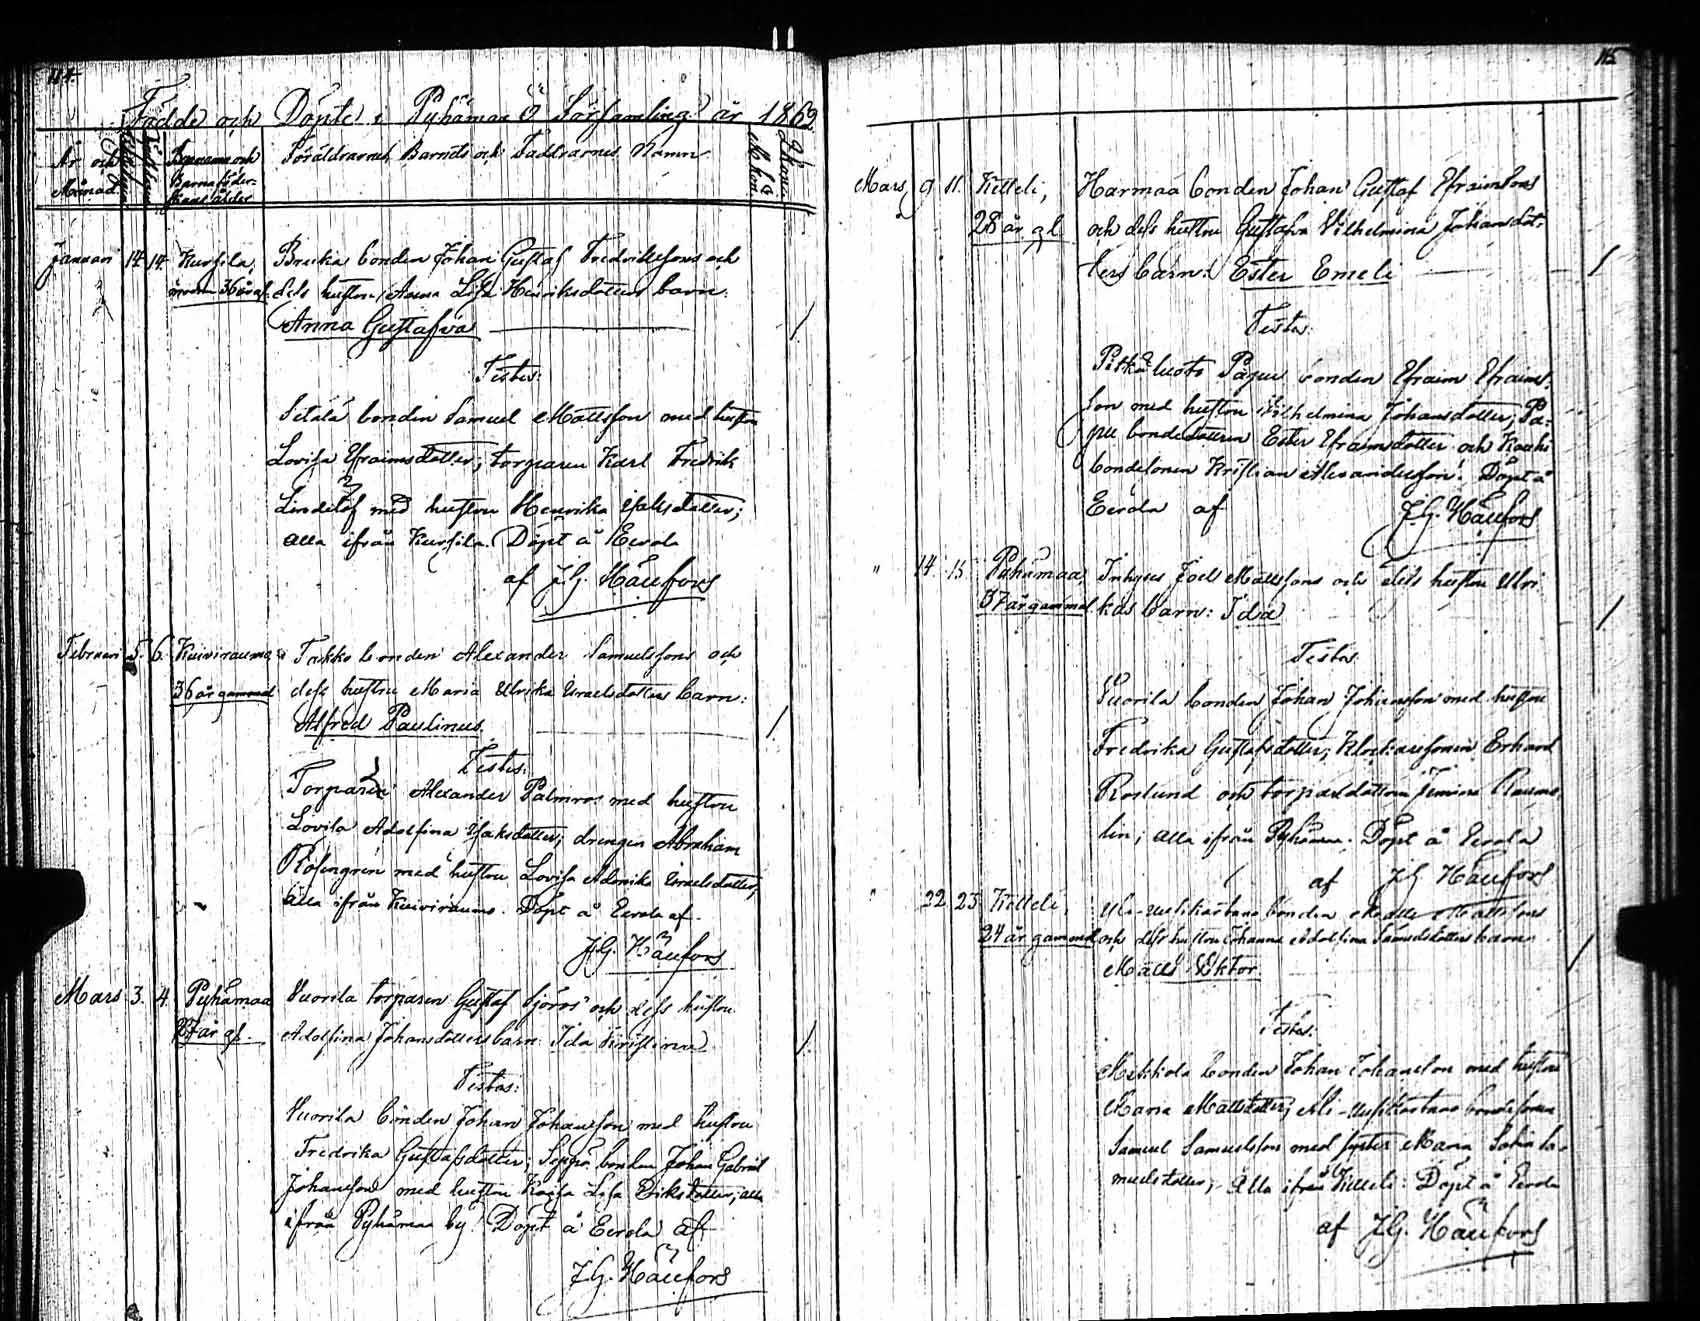 114.
Födde och Döpte i Pyhämaa Ö Församling år 1869
År och Månad.
Byanamn och Barnaföder-skans ålder
Föräldrarnes, Barnets och Faddrarnes Namn
Mkön
Qkön
Januari 14 14 Kursila, Bruka bonden Johan Gustaf Fredrikssons och
36 år gl. dess hustru Anna Lisa Henriksdotters barn:
Anna Gustafva
Testes:
Setälä bonden Samuel Mattsson med hustru
Lovisa Efraimsdotter; torparen Karl Fredrik
Lindelöf med hustru Henrika dotter;
alla ifrån Kursila. Döpt å Eerola
af J.G. Häufors
Februari 5. 6. Kuivirauma, Takko bonden Alexander Samuelssons och
36 år gammal dess hustru Maria Ulrika Israelsdotters barn:
Alfred Paulinus.
Testes:
Torparen Alexander Palmros med hustru
Lovisa Adolfina Isaksdotter; drengen Abraham
Rosengren med hustru Lovisa Israelsdotter,
alla ifrån Kuivirauma. Döpt å Eerola af
J.G. Häufors
Mars 3. 4. Pyhämaa Vuorila torparen Gustaf Sjöros och dess hustru
27 år gl. Adolfina Johansdotters barn: Ida Kristina
Testes:
Vuorila bonden Johan Johansson med hustru
Fredrika Gustafsdotter; Seppä bonden Johan Gabriel
Johansson med hustru Kajsa Lisa Eriksdotter; alla
ifrån Pyhämaa by. Döpt å Eerola af
J.G. Häufors
115
Mars 9 11. Ketteli, Harmaa bonden Johan Gustaf Efraimssons
28 år gl och dess hustru Gustafva Vilhelmina Johansdot-
ters barn: Ester Emeli
Testes:
Pitkäluoto Papu bonden Efraim Efraims-
son med hustru Vilhelmina Johansdotter; Pa-
pu bondedottren Ester Efraimsdotter och
bondesonen Kristian Alexandersson. Döpt å
Eerola af J.G. Häufors
" 14 15 Pyhämaa, Inhyses Joel Mattssons och dess hustru Ulri-
37 år gammal kas barn: Ida
Testes:
Vuorila bonden Johan Johansson med hustru
Fredrika Gustafsdotter; Klockaresonen Erhard
Roslund och torparedottren Rauma-
lin; alla ifrån Pyhämaa. Döpt å Eerola
af J.G. Häufors
" 22 23 Ketteli, bonden Matts Mattssons
24 år gammal och dess hustru Johanna Adolfina Samuelsdotters barn
Matts Viktor
Testes:
Mekkola bonden Johan Johansson med hustru
Maria Mattsdotter; bondesonen
Samuel Samuelsson med syster Maria Sofia Sa-
muelsdotter; Alla ifrån Ketteli. Döpt å Eerola
af J.G. Häufors